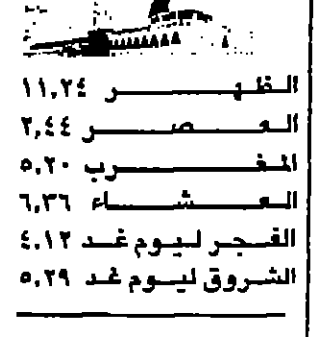 الظهر ١١,٢٤
العصر ٢,٤٤
المغرب ٥,٢٠
العشاء ٦,٣٦
الفجر ليوم غد ٤,١٢
الشروق ليوم غد ٥,٢٩